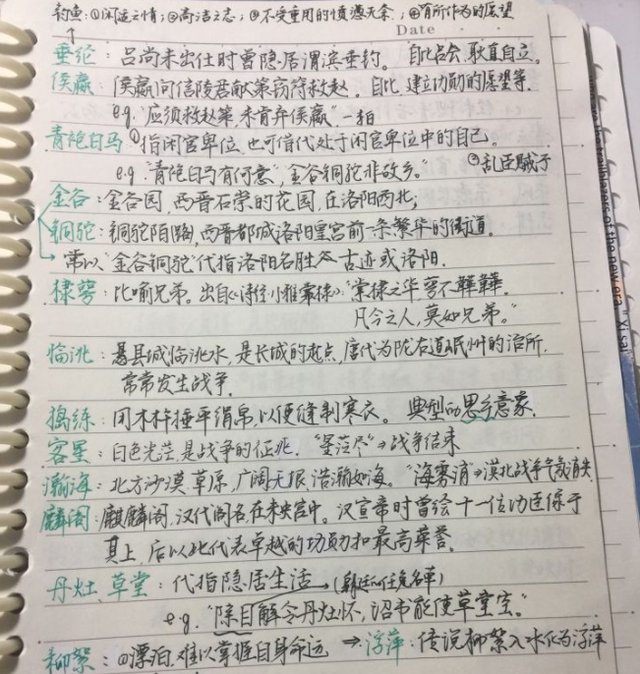 钓鱼：①闲适之情；②高洁之志；③不受重用的愤懑无奈；④有所作为的愿望
Date
垂纶：吕尚未出仕时曾隐居渭滨垂钓。
侯嬴：侯嬴向信陵君献策窃符救赵。自比，建立功勋的愿望等。
e.g. "应须救赵策，未肯弃侯嬴"
青袍白马①指闲官卑位，也可借代处于闲官卑位中的自己。
e.g. "青袍白马有何意，金谷铜驼非故乡。" ②乱臣贼子
金谷：金谷园，西晋石崇的花园，在洛阳西北；
铜驼：铜驼陌路，西晋都城洛阳皇宫前一条繁华的街道。
常以"金谷铜驼"代指洛阳名胜古迹或洛阳。
棣萼：比喻兄弟。出自《诗经·小雅·常棣》："常棣之华，萼不韡韡。
凡今之人，莫如兄弟。"
临洮：县城临洮水，是长城的起点，唐代为陇右道岷州的治所，
常常发生战争。
捣练：用木杵捶平绢帛，以便缝制寒衣。典型的思乡意象。
客星：白色光芒，是战争的征兆。"客星尽"→战争结束
瀚海：北方沙漠草原，广阔无垠，浩瀚如海。"海雾消"→漠北战争气氛消失
麟阁：麒麟阁，汉代阁名，在未央宫中。汉宣帝时曾绘十一位功臣像于
其上，后以此代表卓越的功勋和最高荣誉。
丹灶、草堂：代指隐居生活→（朝廷的任免名单）
e.g. "除目解令丹灶怀，诏书能使草堂空。"
柳絮：①漂泊，难以掌握自身命运 → 浮萍：传说柳絮入水化为浮萍